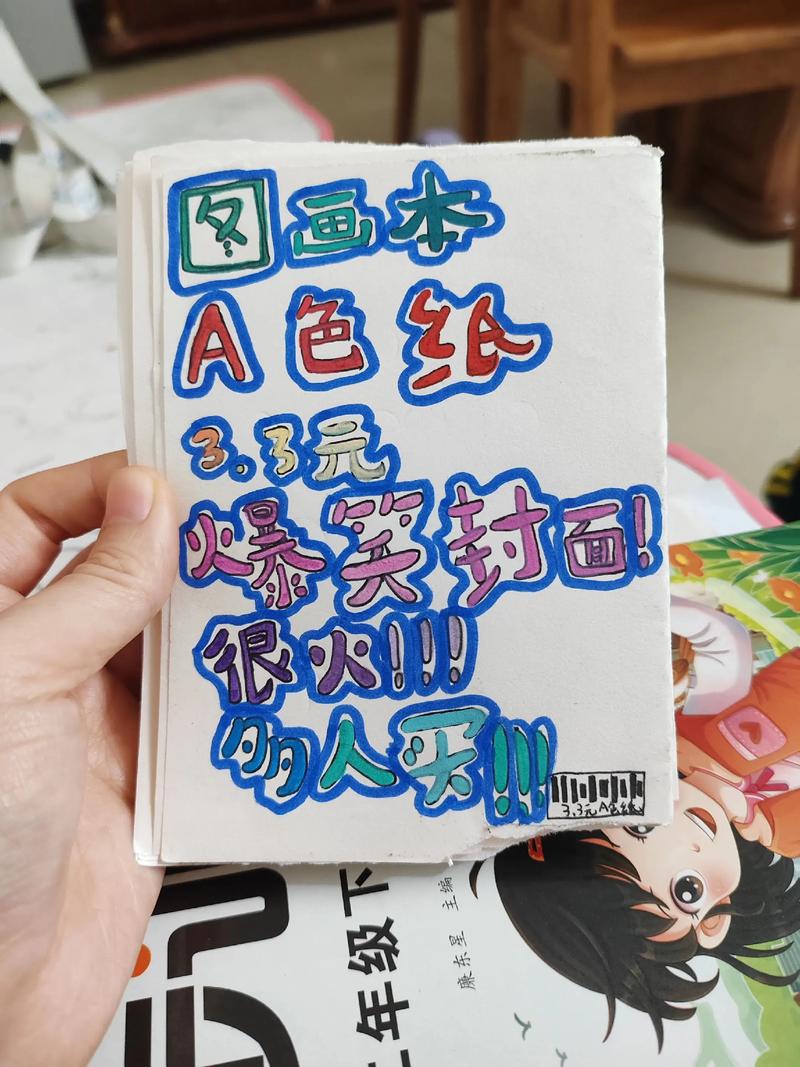 图画本
A色纸
3.3元
爆笑封面!
很火!!!
多人买!!!
3.3元A色纸
年级下
廉东星 主编